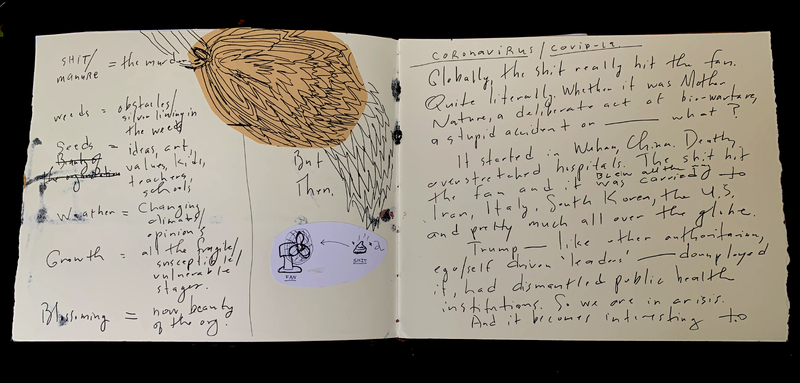 SHIT/
manure = the murder
weeds = obstacles/
silver lining in
the weeds
Seeds = ideas, art,
Beauty of
the organization
values, kids,
teachers,
schools
Weather = Changing
climats/
opinions
Growth = all the fragile/
susceptible/
vulnerable
stages.
Blossoming = now, beauty
of the org.
But
Then.
FAN
SHIT
CORONAVIRUS / COVID-19.
Globally, the shit really hit the fan.
Quite literally. Whether it was Mother
Nature, a deliberate act of bio-warfare,
a stupid accident or —— what?
It started in Wuhan, China. Death,
overstretched hospitals. The shit hit
the fan and it blew all the way to
was carried
Iran, Italy, South Korea, the U.S.
and pretty much all over the globe.
Trump — like other authoritarian,
ego/self driven 'leaders' — downplayed
it, had dismantled public health
institutions. So we are in a crisis.
And it becomes interesting to